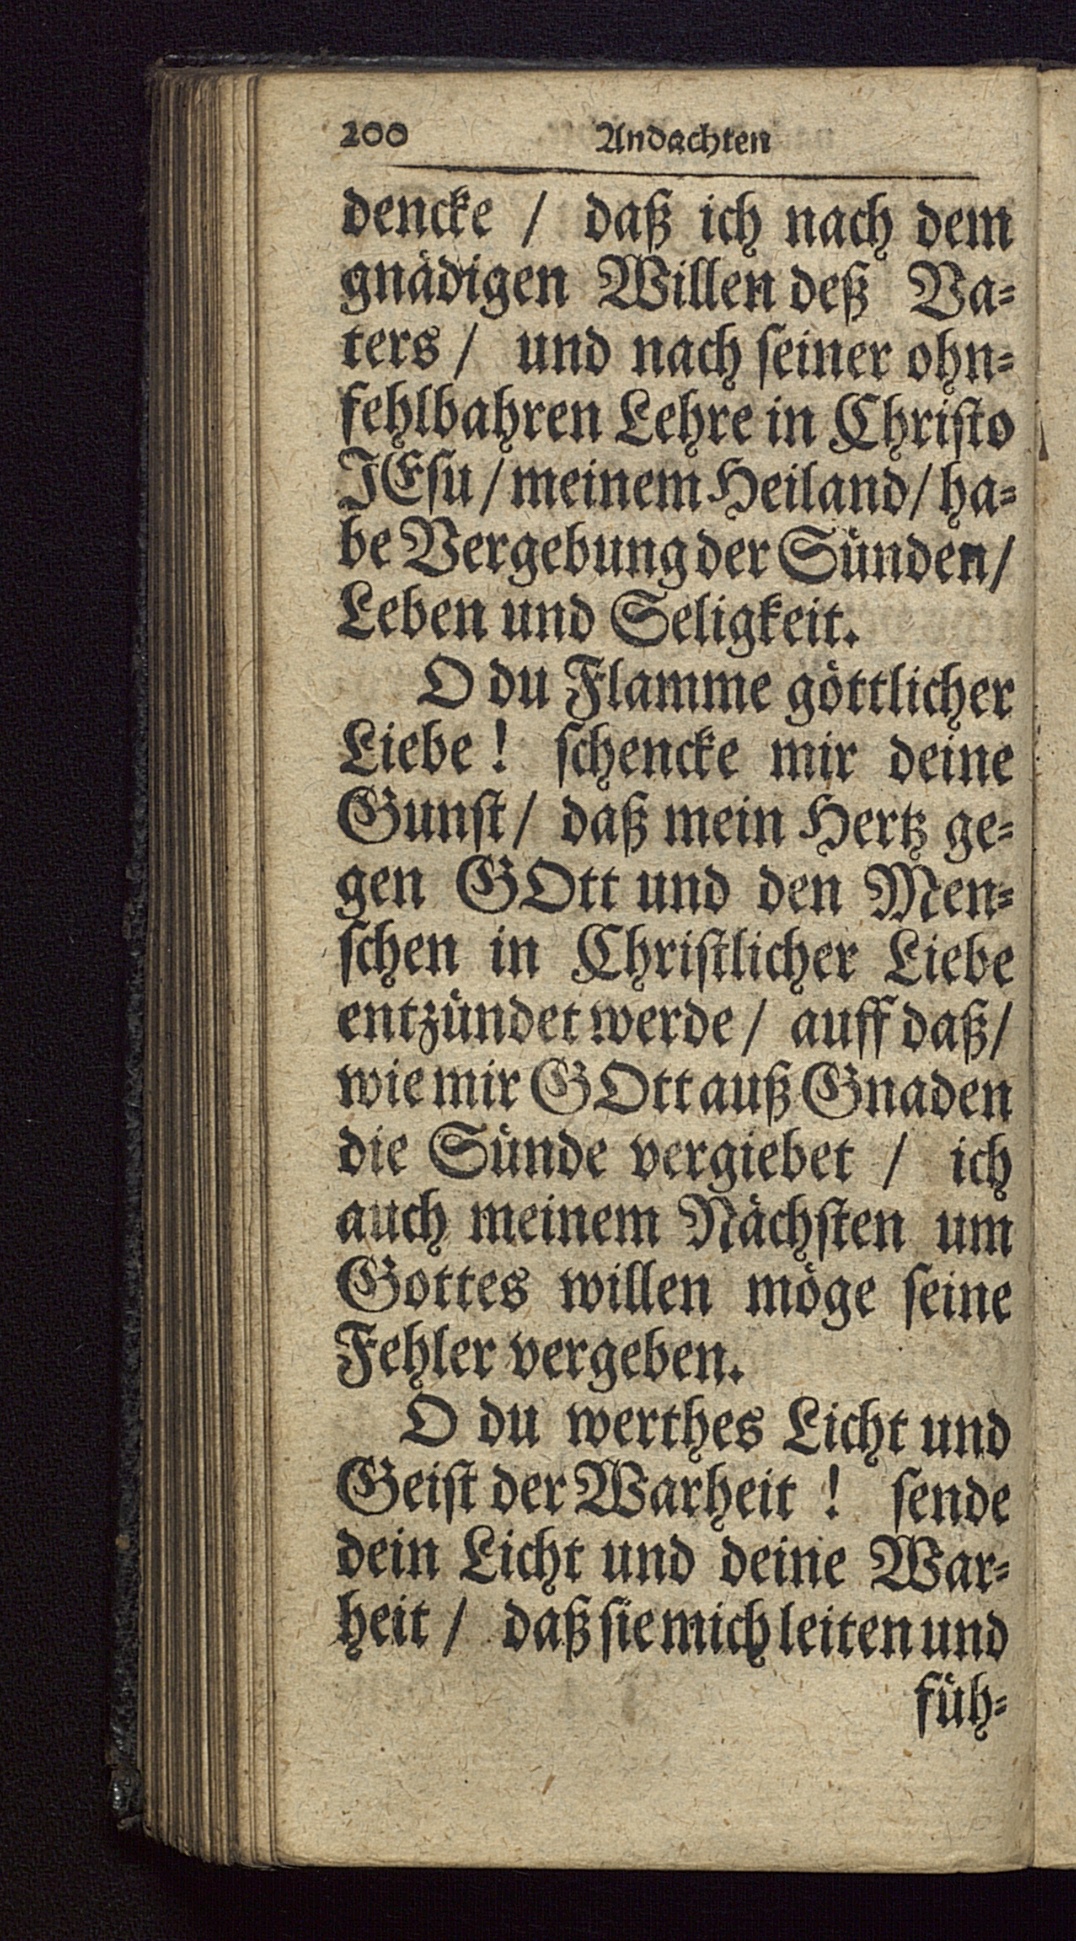 200 Andachten
dencke / daß ich nach dem
gnädigen Willen deß Va=
ters / und nach ſeiner ohn=
fehlbahren Lehre in Chriſto
JEſu / meinem Heiland / ha=
be Vergebung der Sünden /
Leben und Seligkeit.
O du Flamme göttlicher
Liebe ! ſchencke mir deine
Gunſt / daß mein Hertz ge=
gen GOtt und den Men=
ſchen in Chriſtlicher Liebe
entzündet werde / auff daß /
wie mir GOtt auß Gnaden
die Sünde vergiebet / ich
auch meinem Nächſten um
Gottes willen möge ſeine
Fehler vergeben.
O du werthes Licht und
Geiſt der Warheit ! ſende
dein Licht und deine War=
heit / daß ſie mich leiten und
füh=